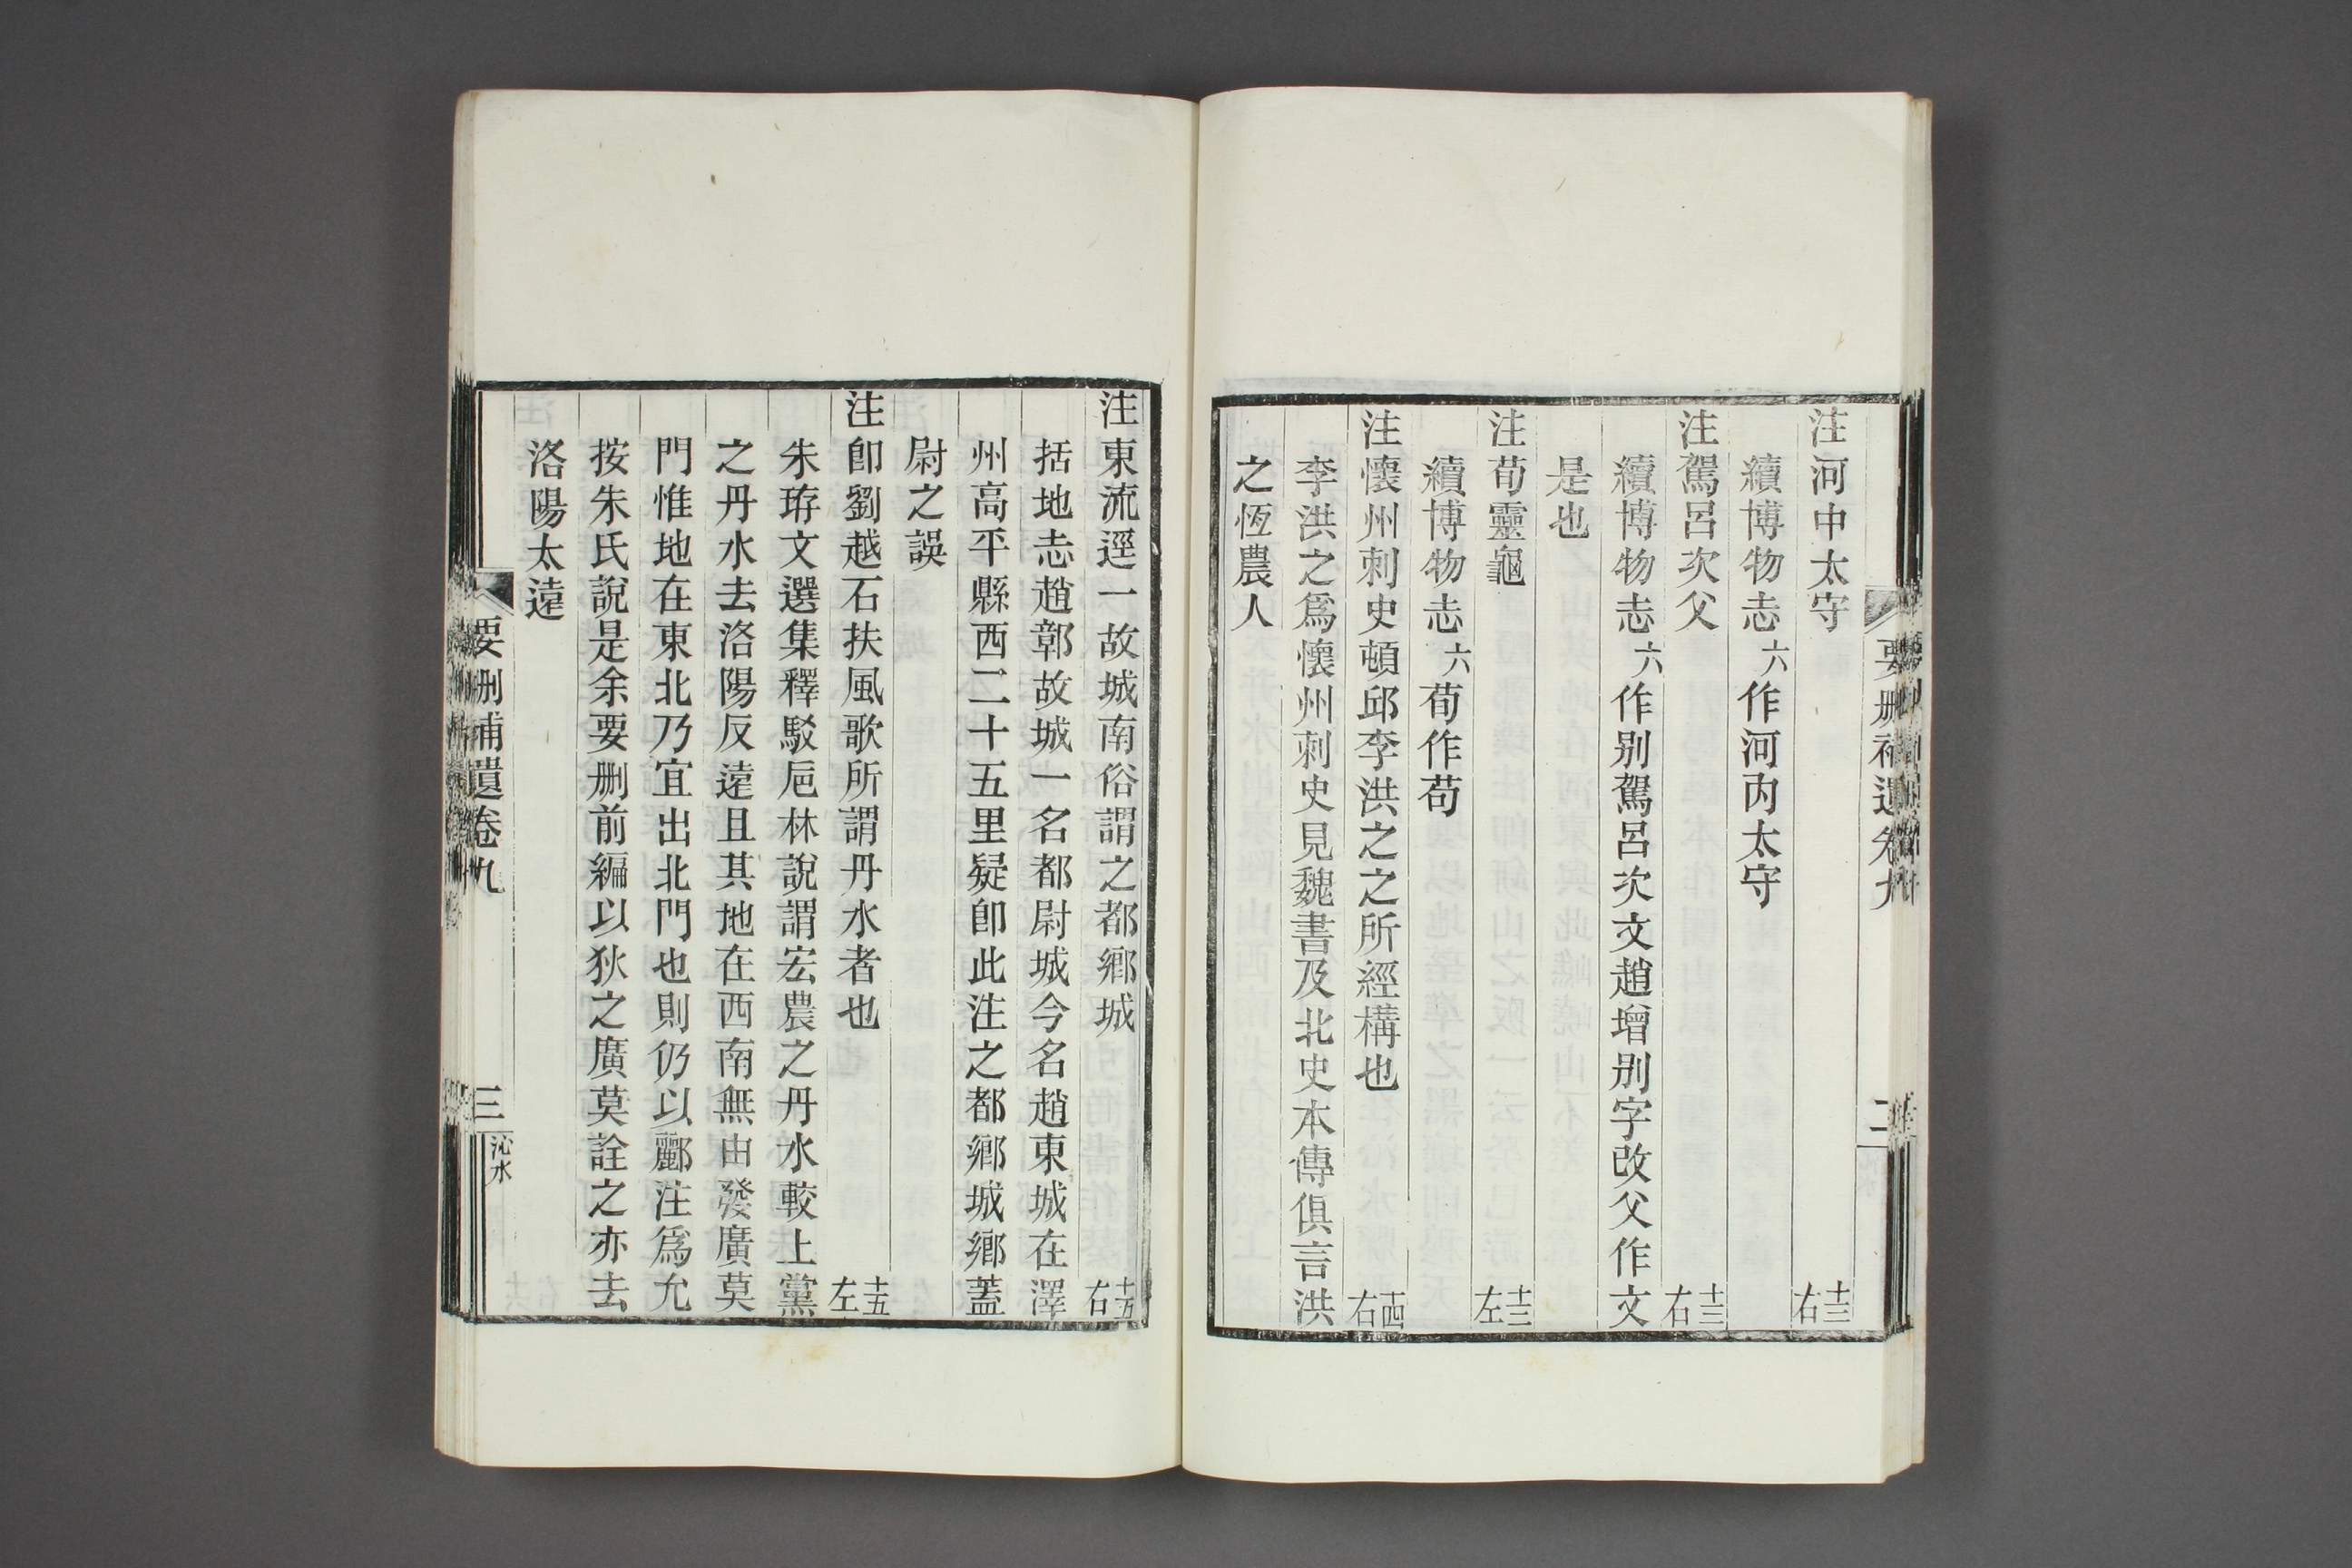 注河中太守 十三右
續博物志六作河內太守
注駕呂次父 十三右
續博物志六作別駕呂次文趙增別字改父作文
是也
注荀靈龜 十三左
續博物志六荀作苟
注懷州刺史頓邱李洪之之所經構也 十四右
李洪之爲懷州刺史見魏書及北史本傳俱言洪
之恆農人
要刪補遺卷九
二
注東流逕一故城南俗謂之都鄉城 十五右
括地志趙鄣故城一名都尉城今名趙東城在澤
州高平縣西二十五里疑卽此注之都鄉城鄉蓋
尉之誤
注卽劉越石扶風歌所謂丹水者也 十五左
朱珔文選集釋駁巵林說謂宏農之丹水較上黨
之丹水去洛陽反遠且其地在西南無由發廣莫
門惟地在東北乃宜出北門也則仍以酈注爲允
按朱氏說是余要刪前編以狄之廣莫詮之亦去
洛陽太遠
要刪補遺卷九
三
沁水